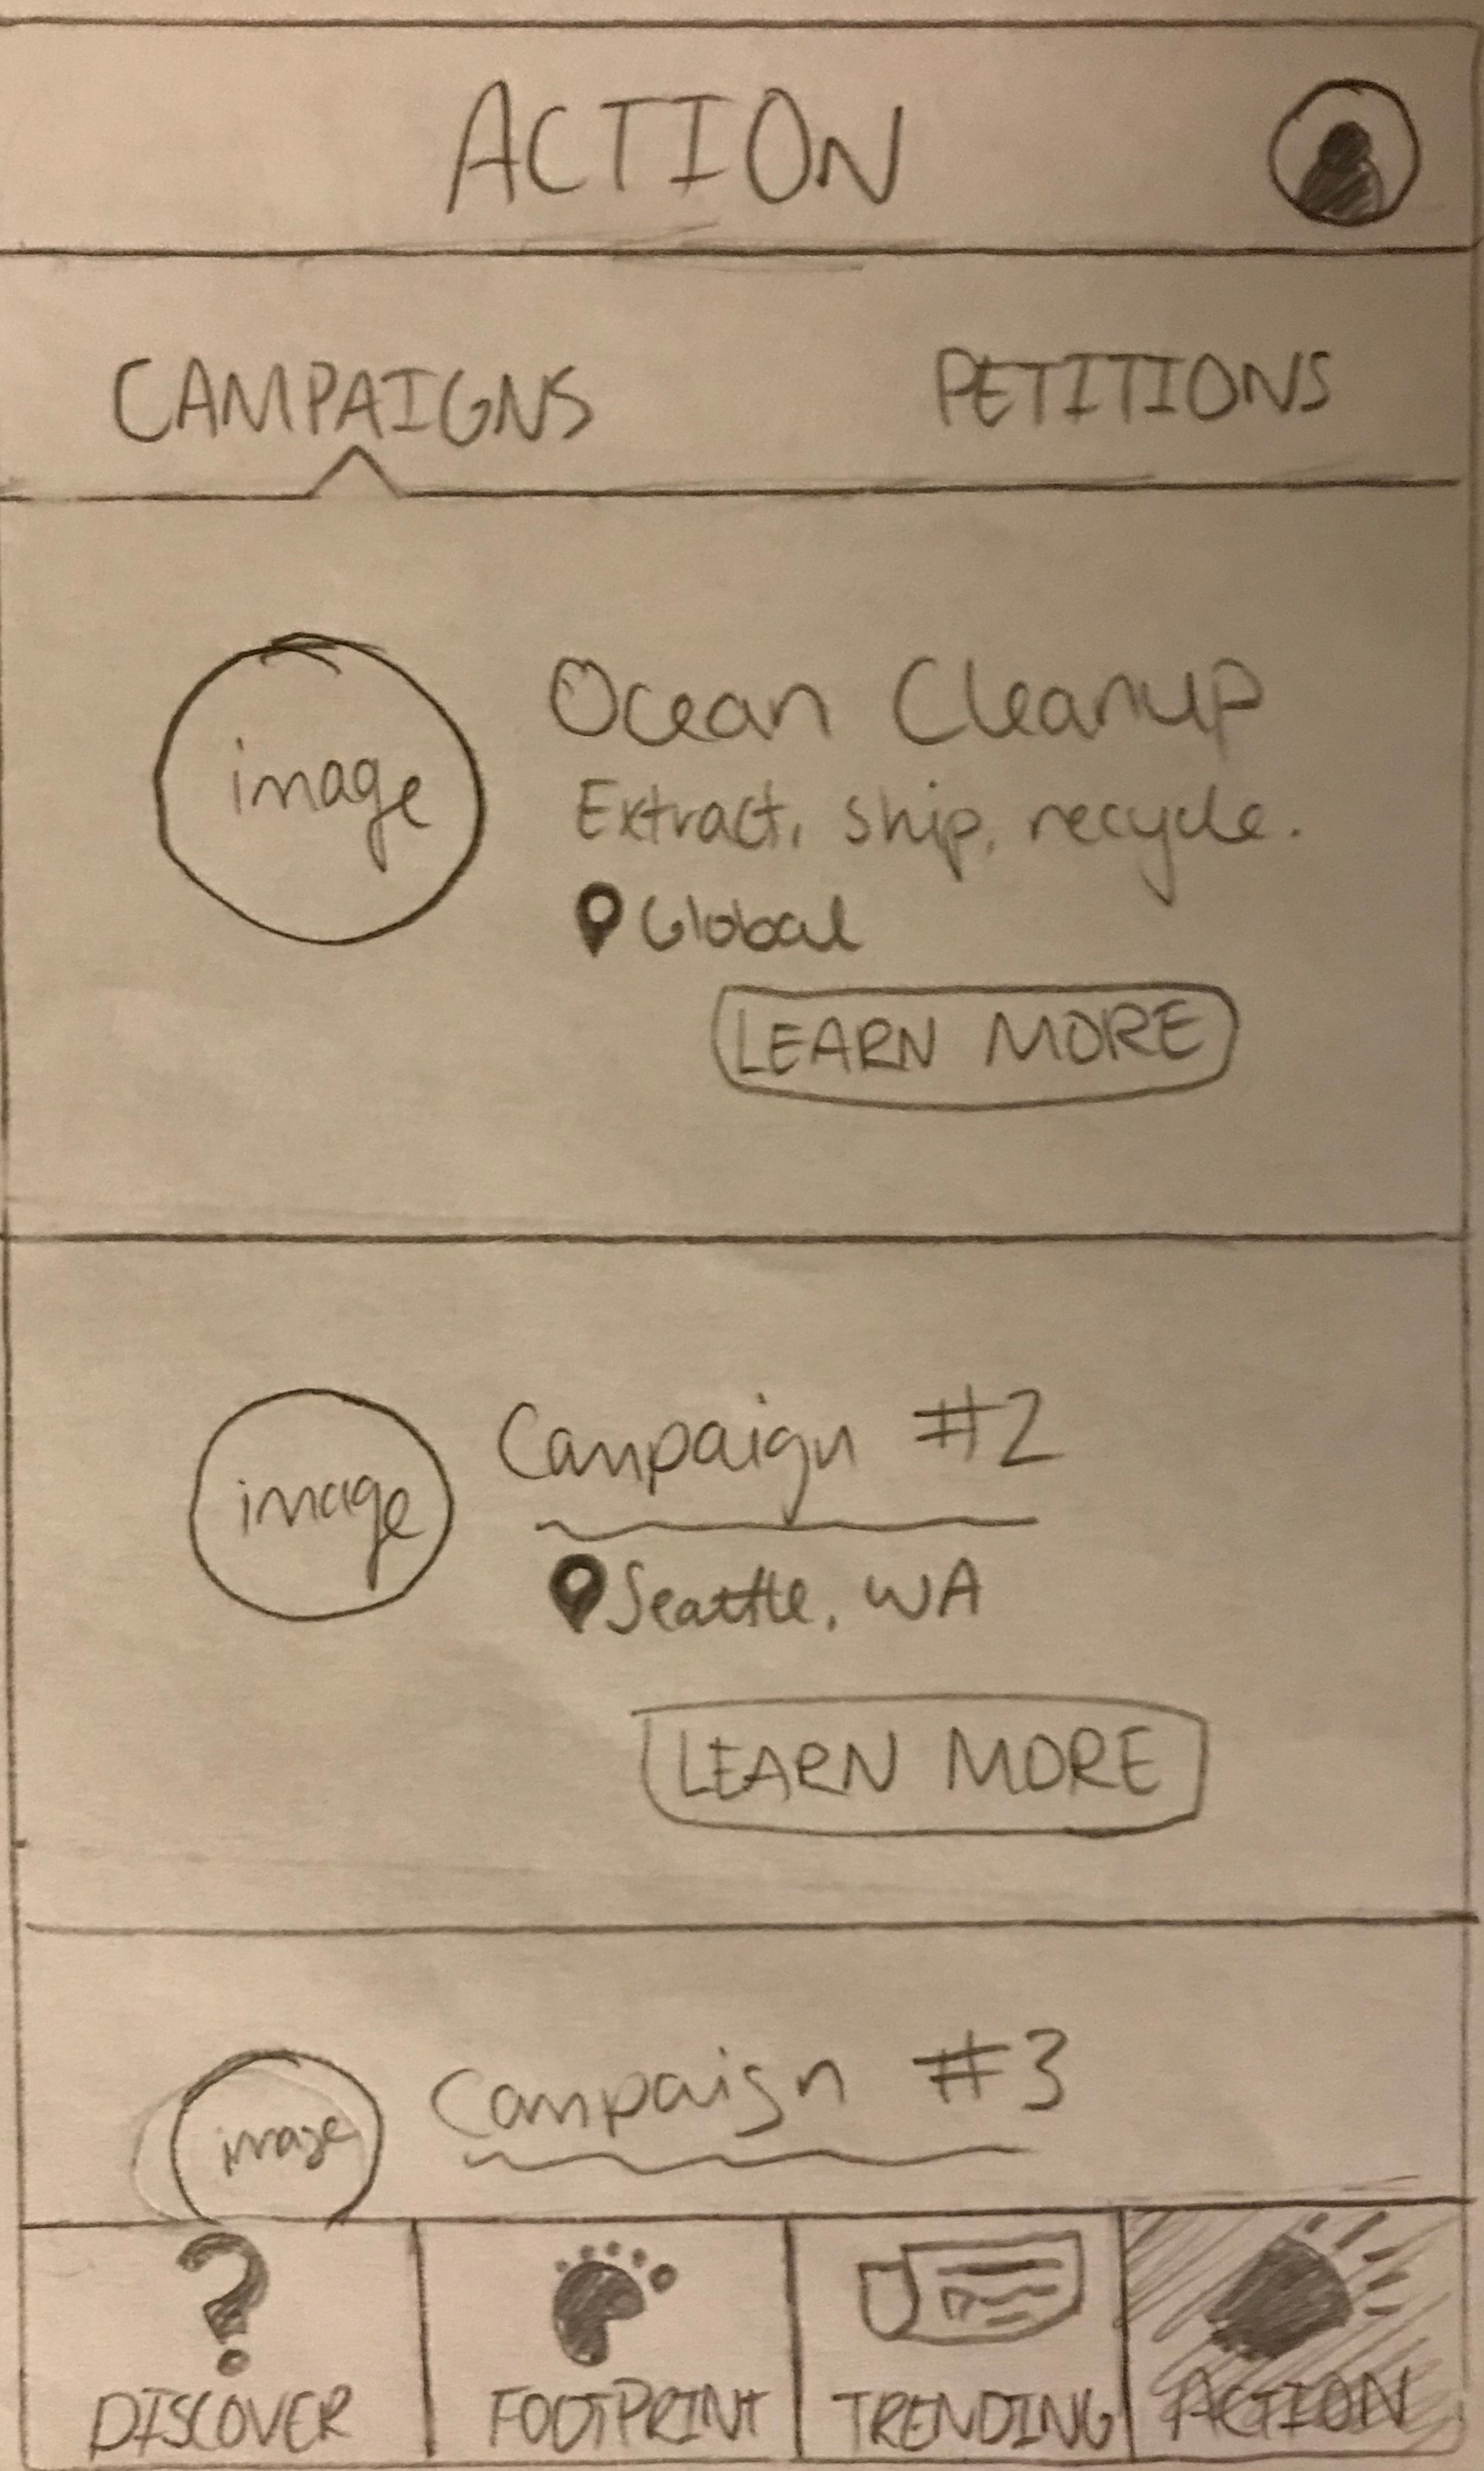 ACTION
CAMPAIGNS PETITIONS
image
Ocean Cleanup
Extract, ship, recycle.
Global
LEARN MORE
image
Campaign #2
Seattle, WA
LEARN MORE
image
Campaign #3
?
DISCOVER FOOTPRINT TRENDING ACTION